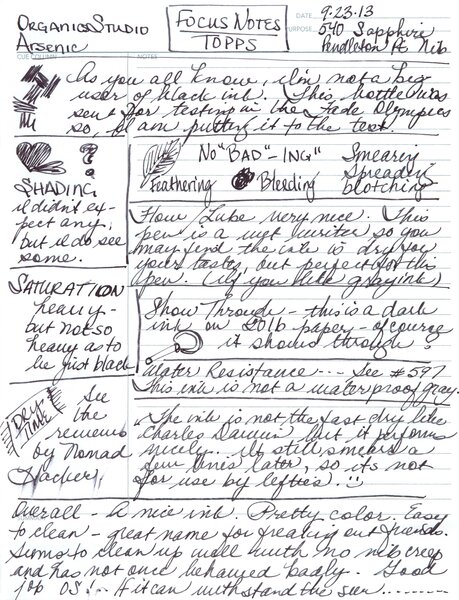 OrganicsStudio
Arsenic
FOCUS NOTES
TOPPS
DATE 9-23-13
PURPOSE 540 Sapphire
Pendleton Pt. Nib
CUE COLUMN
NOTES
As you all know, I'm not a big
user of black ink. This bottle was
sent for testing in the Fade Olympics
so, I am putting it to the test.
SHADING
I didn't ex-
pect any,
but I do see
some.
No "BAD"-ING"
Feathering Bleeding
Smearing
Spreading
blotching
SATURATION
heavy -
but not so
heavy as to
be just black
Flow & Lube very nice. This
pen is a wet writer so you
may find the ink is dry for
your taste, but perfect for this
pen. (if you like gray ink)
Show Through - this is a dark
ink on 20lb paper - of course
it shows through
Water Resistance --- See #597
This ink is not a waterproof gray.
DRY-TIME
See
the
reviews
by Nomad
Hacker,
The ink is not the fast dry like
Charles Darwin but it performs
nicely.. It still smears a
few lines later, so its not
for use by lefties.
Overall - A nice ink. Pretty color. Easy
to clean - great name for freaking out friends.
Seems to clean up well with no nib creep
and has not once behaved badly. Good
job OS!.. If it can withstand the sun........